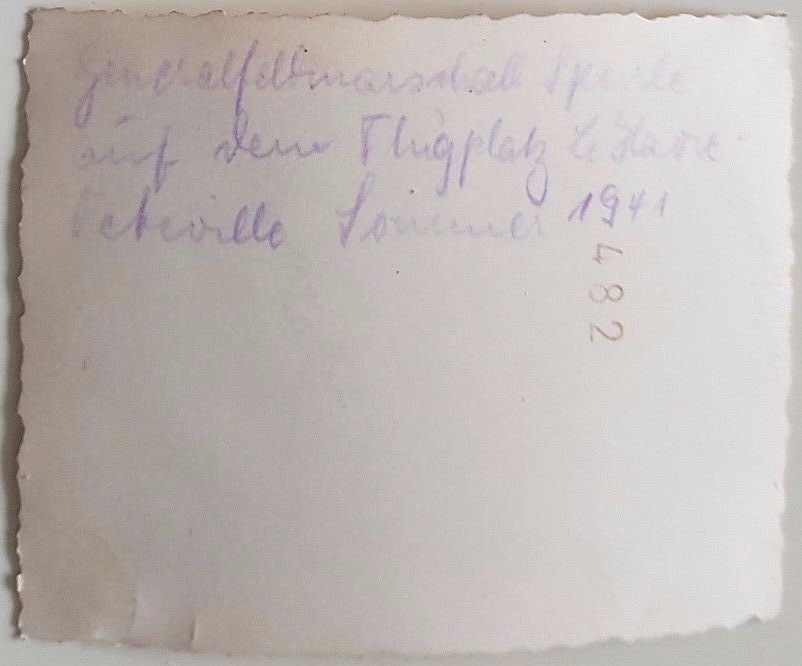 Generalfeldmarschall Sperrle
auf dem Flugplatz Le Havre-
Octeville Sommer 1941
482